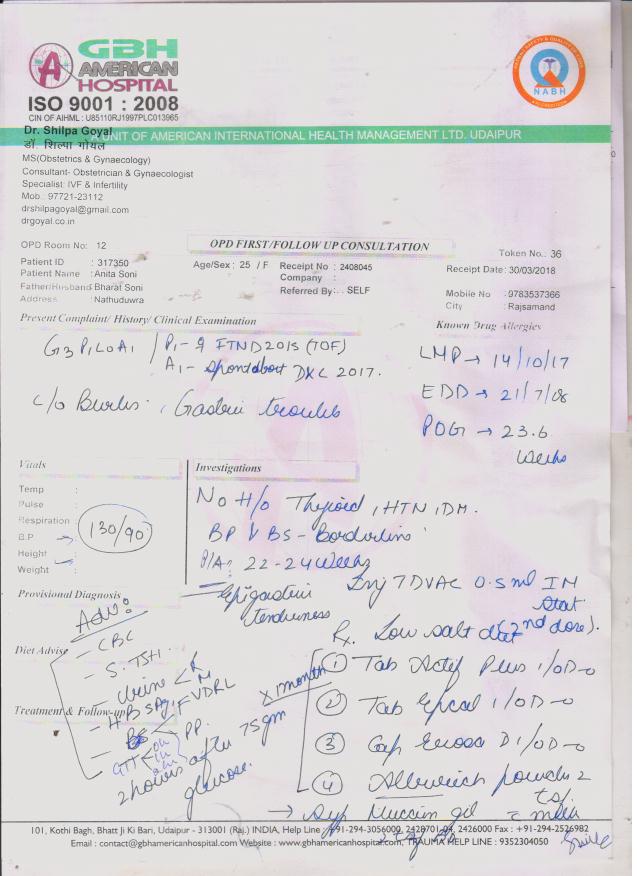 GBH
AMERICAN
HOSPITAL
ISO 9001 : 2008
CIN OF AIHML : U85110RJ1997PLC013965
NABH
A UNIT OF AMERICAN INTERNATIONAL HEALTH MANAGEMENT LTD. UDAIPUR
Dr. Shilpa Goyal
डॉ. शिल्पा गोयल
MS(Obstetrics & Gynaecology)
Consultant- Obstetrician & Gynaecologist
Specialist: IVF & Infertility
Mob.: 97721-23112
drshilpagoyal@gmail.com
drgoyal.co.in
OPD Room No: 12
OPD FIRST/FOLLOW UP CONSULTATION
Token No.: 36
Patient ID : 317350
Age/Sex : 25 / F
Receipt No : 2408045
Receipt Date: 30/03/2018
Patient Name : Anita Soni
Company :
Father/Husband Bharat Soni
Referred By: . SELF
Mobile No : 9783537366
Address : Nathuduwra
City : Rajsamand
Present Complaint/ History/ Clinical Examination
Known Drug Allergies
G3 P1L0A1 / P1 - FTND2015 (TOF)
A1 - spont abort D&C 2017.
C/o
LMP → 14/10/17
EDD → 21/7/08
POG → 23.6
weeks
Vitals
Temp :
Pulse :
Respiration :
B.P
Height :
Weight :
130/90
Investigations
No H/o Thyroid, HTN, DM.
BP BS - Borderline
P/A: 22-24 weeks
Epigastric
tenderness
Inj TDVAC 0.5 ml IM
stat
(2nd dose).
Provisional Diagnosis
Adv:
Diet Advise
- CBC
- S. TSH.
- Urine < R
M
- HBSAg, VDRL
Treatment & Follow-up
- BS < F
PP.
GTT
2 hours after 75gm
glucose.
Rx. Low salt diet
x 1 month
① Tab Actif Plus 1/OD
② Tab 1/OD
③ Cap D 1/OD
④ powder 2
tsf
→ Syp gel
101, Kothi Bagh, Bhatt Ji Ki Bari, Udaipur - 313001 (Raj.) INDIA, Help Line : +91-294-3056000, 2428701-04, 2426000 Fax : +91-294-2526982
Email : contact@gbhamericanhospital.com Website : www.gbhamericanhospital.com, TRAUMA HELP LINE : 9352304050